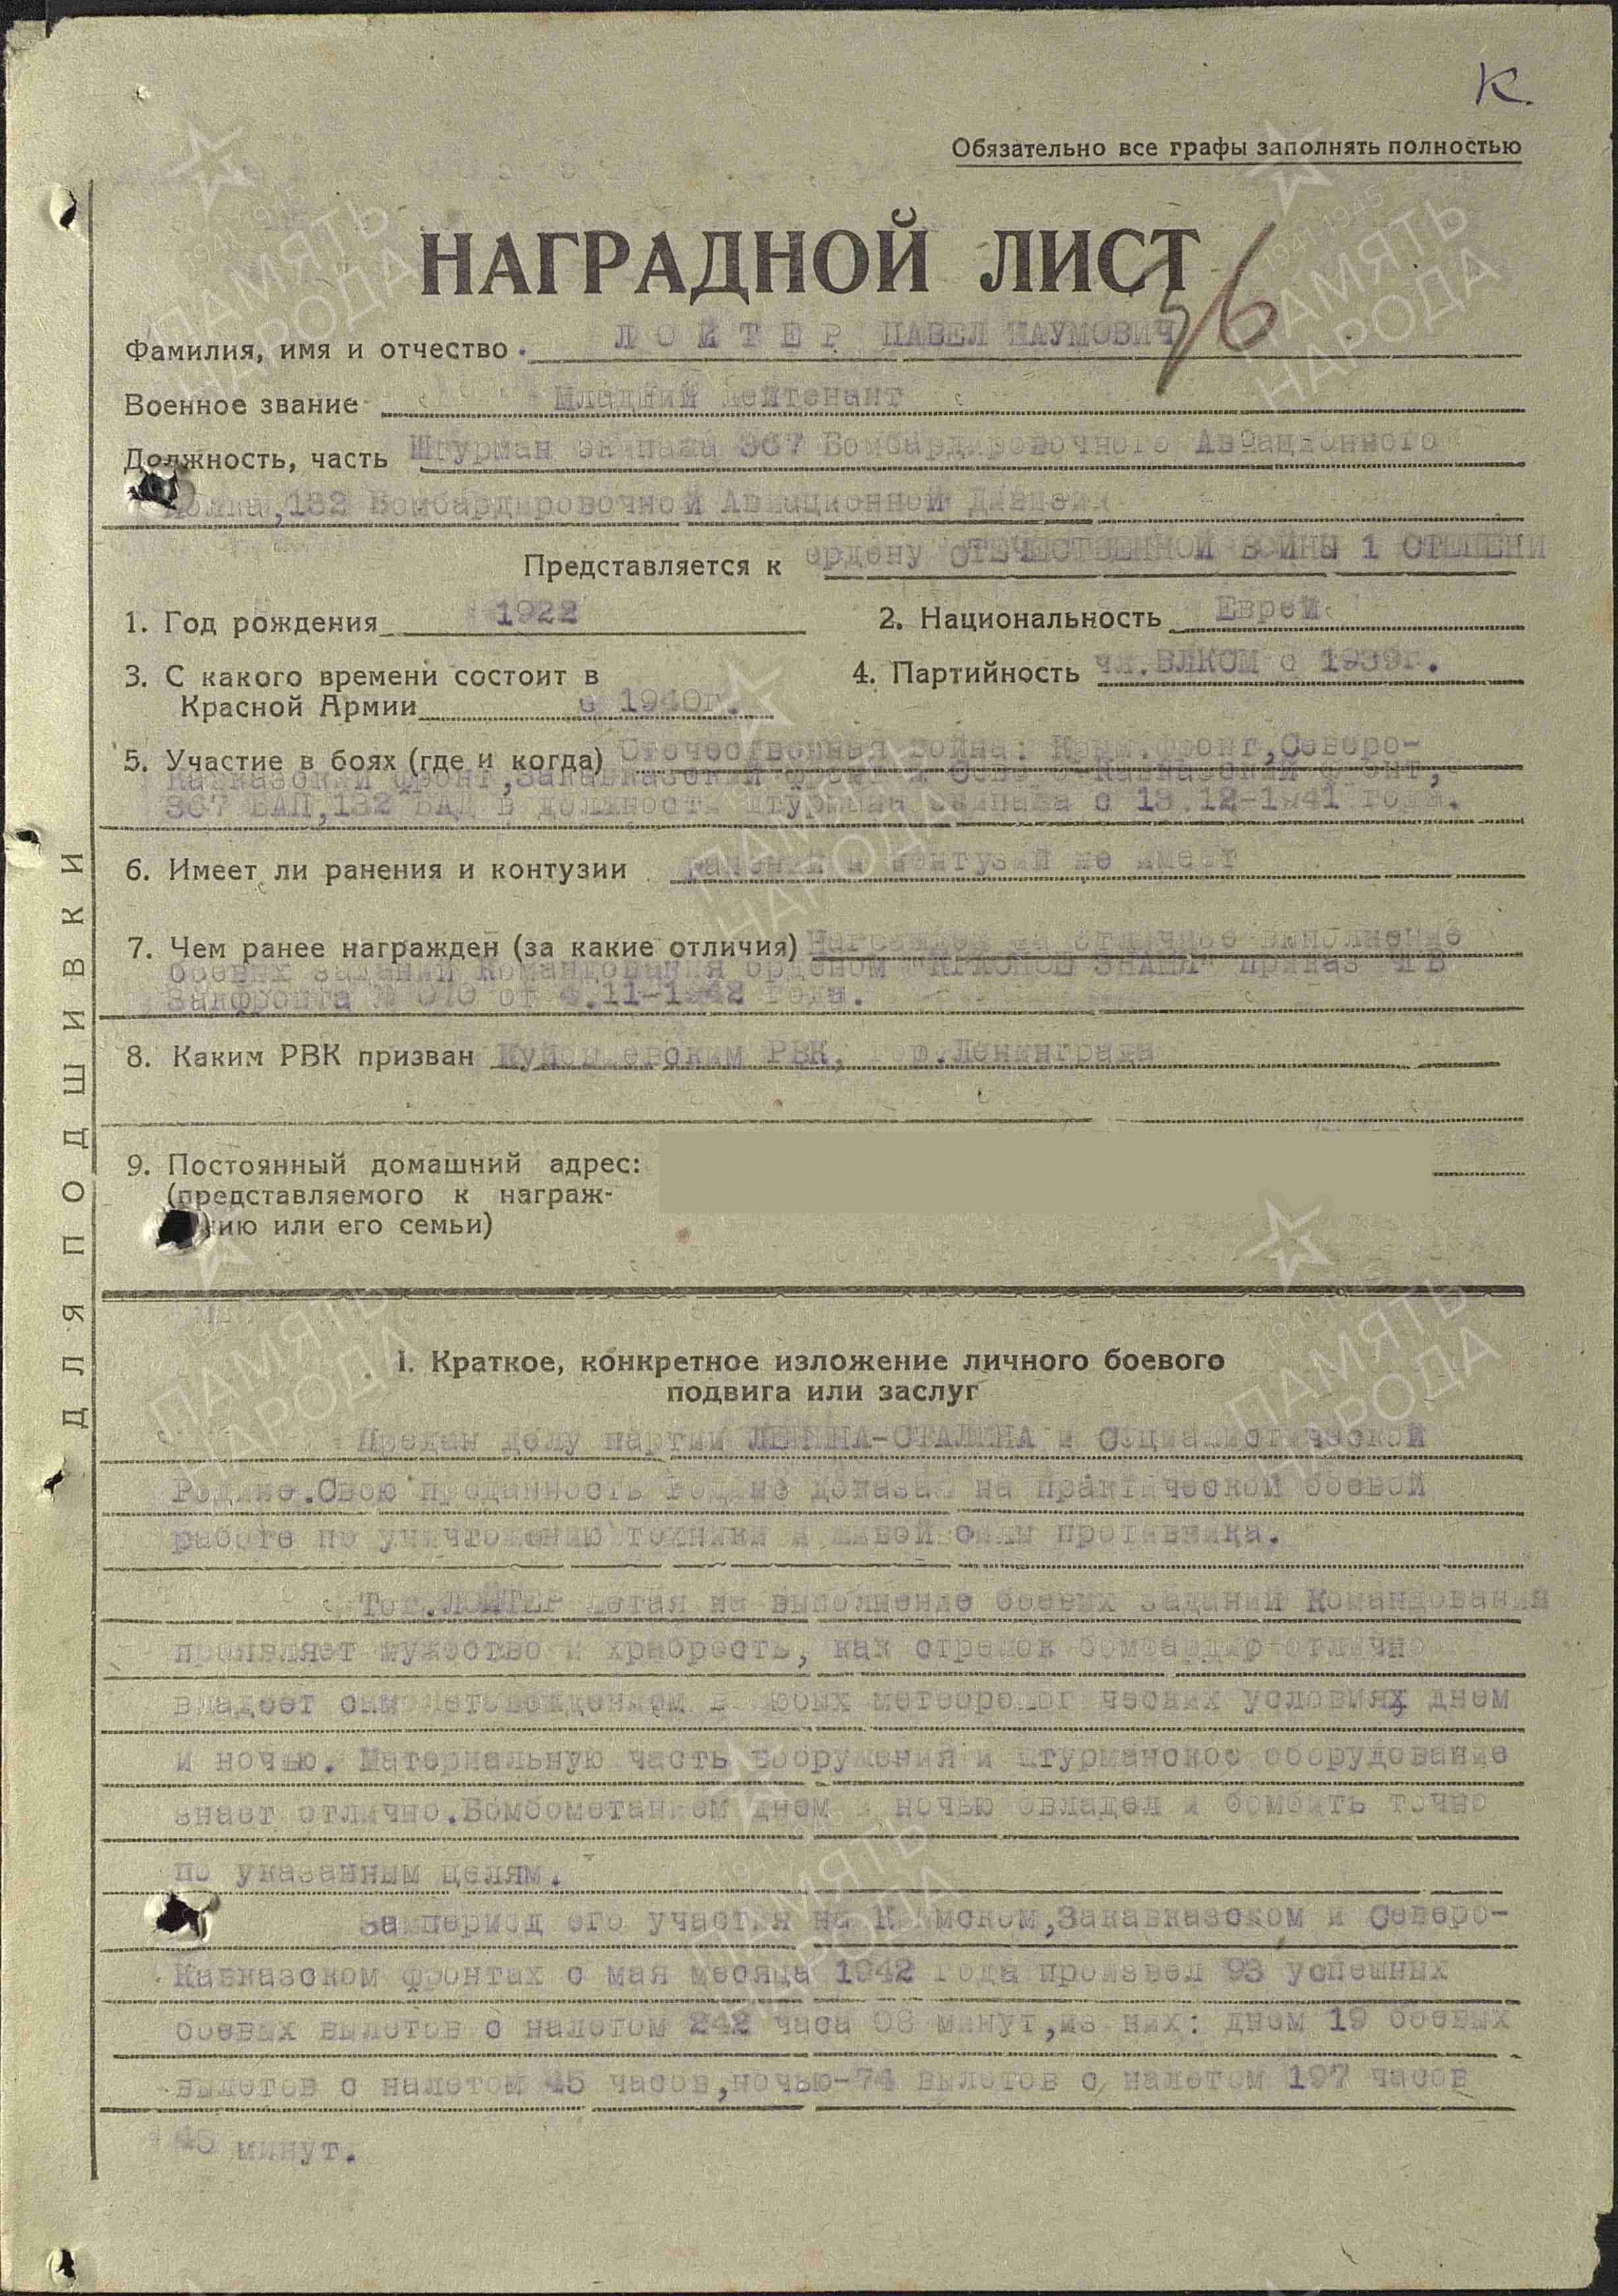 К
Обязательно все графы заполнять полностью
НАГРАДНОЙ ЛИСТ
Фамилия, имя и отчество ЛОЙТЕР ПАВЕЛ НАУМОВИЧ
Военное звание Младший лейтенант
Должность, часть Штурман экипажа 367 Бомбардировочного Авиационного
полка, 132 Бомбардировочной Авиационной Дивизии
Представляется к ордену ОТЕЧЕСТВЕННОЙ ВОЙНЫ 1 СТЕПЕНИ
1. Год рождения 1922 2. Национальность Еврей
3. С какого времени состоит в 4. Партийность чл.ВЛКСМ с 1939г.
Красной Армии с 1940г.
5. Участие в боях (где и когда) Отечественная война: Крым.фронт,Северо-
Кавказский фронт,Закавказский фронт и Северо-Кавказский фронт,
367 БАП,132 БАД в должности штурмана экипажа с 13.12-1941 года.
6. Имеет ли ранения и контузии ранений и контузий не имеет
7. Чем ранее награжден (за какие отличия) Награжден за отличное выполнение
боевых заданий Командования орденом "КРАСНОЕ ЗНАМЯ" приказ ЧГВ
Закфронта № от 11-1942 года.
8. Каким РВК призван Куйбышевским РВК, гор.Ленинграда
9. Постоянный домашний адрес:
(представляемого к награж-
нию или его семьи)
ДЛЯ ПОДШИВКИ
I. Краткое, конкретное изложение личного боевого
подвига или заслуг
Предан делу партии ЛЕНИНА-СТАЛИНА и Социалистической
Родине.Свою преданность Родине доказал на практической боевой
работе по уничтожению техники и живой силы противника.
Тов.ЛОЙТЕР летая на выполнение боевых заданий Командования
проявляет мужество и храбрость, как стрелок бомбардир отлично
владеет самолетовождением в любых метеорологических условиях днем
и ночью. Материальную часть вооружения и штурманское оборудование
знает отлично.Бомбометанием днем и ночью овладел и бомбить точно
по указанным целям.
За период его участия на Крымском,Закавказском и Северо-
Кавказском фронтах с мая месяца 1942 года произвел 93 успешных
боевых вылетов с налетом 242 часа 08 минут,из них: днем 19 боевых
вылетов с налетом 45 часов,ночью-74 вылетов с налетом 197 часов
45 минут.